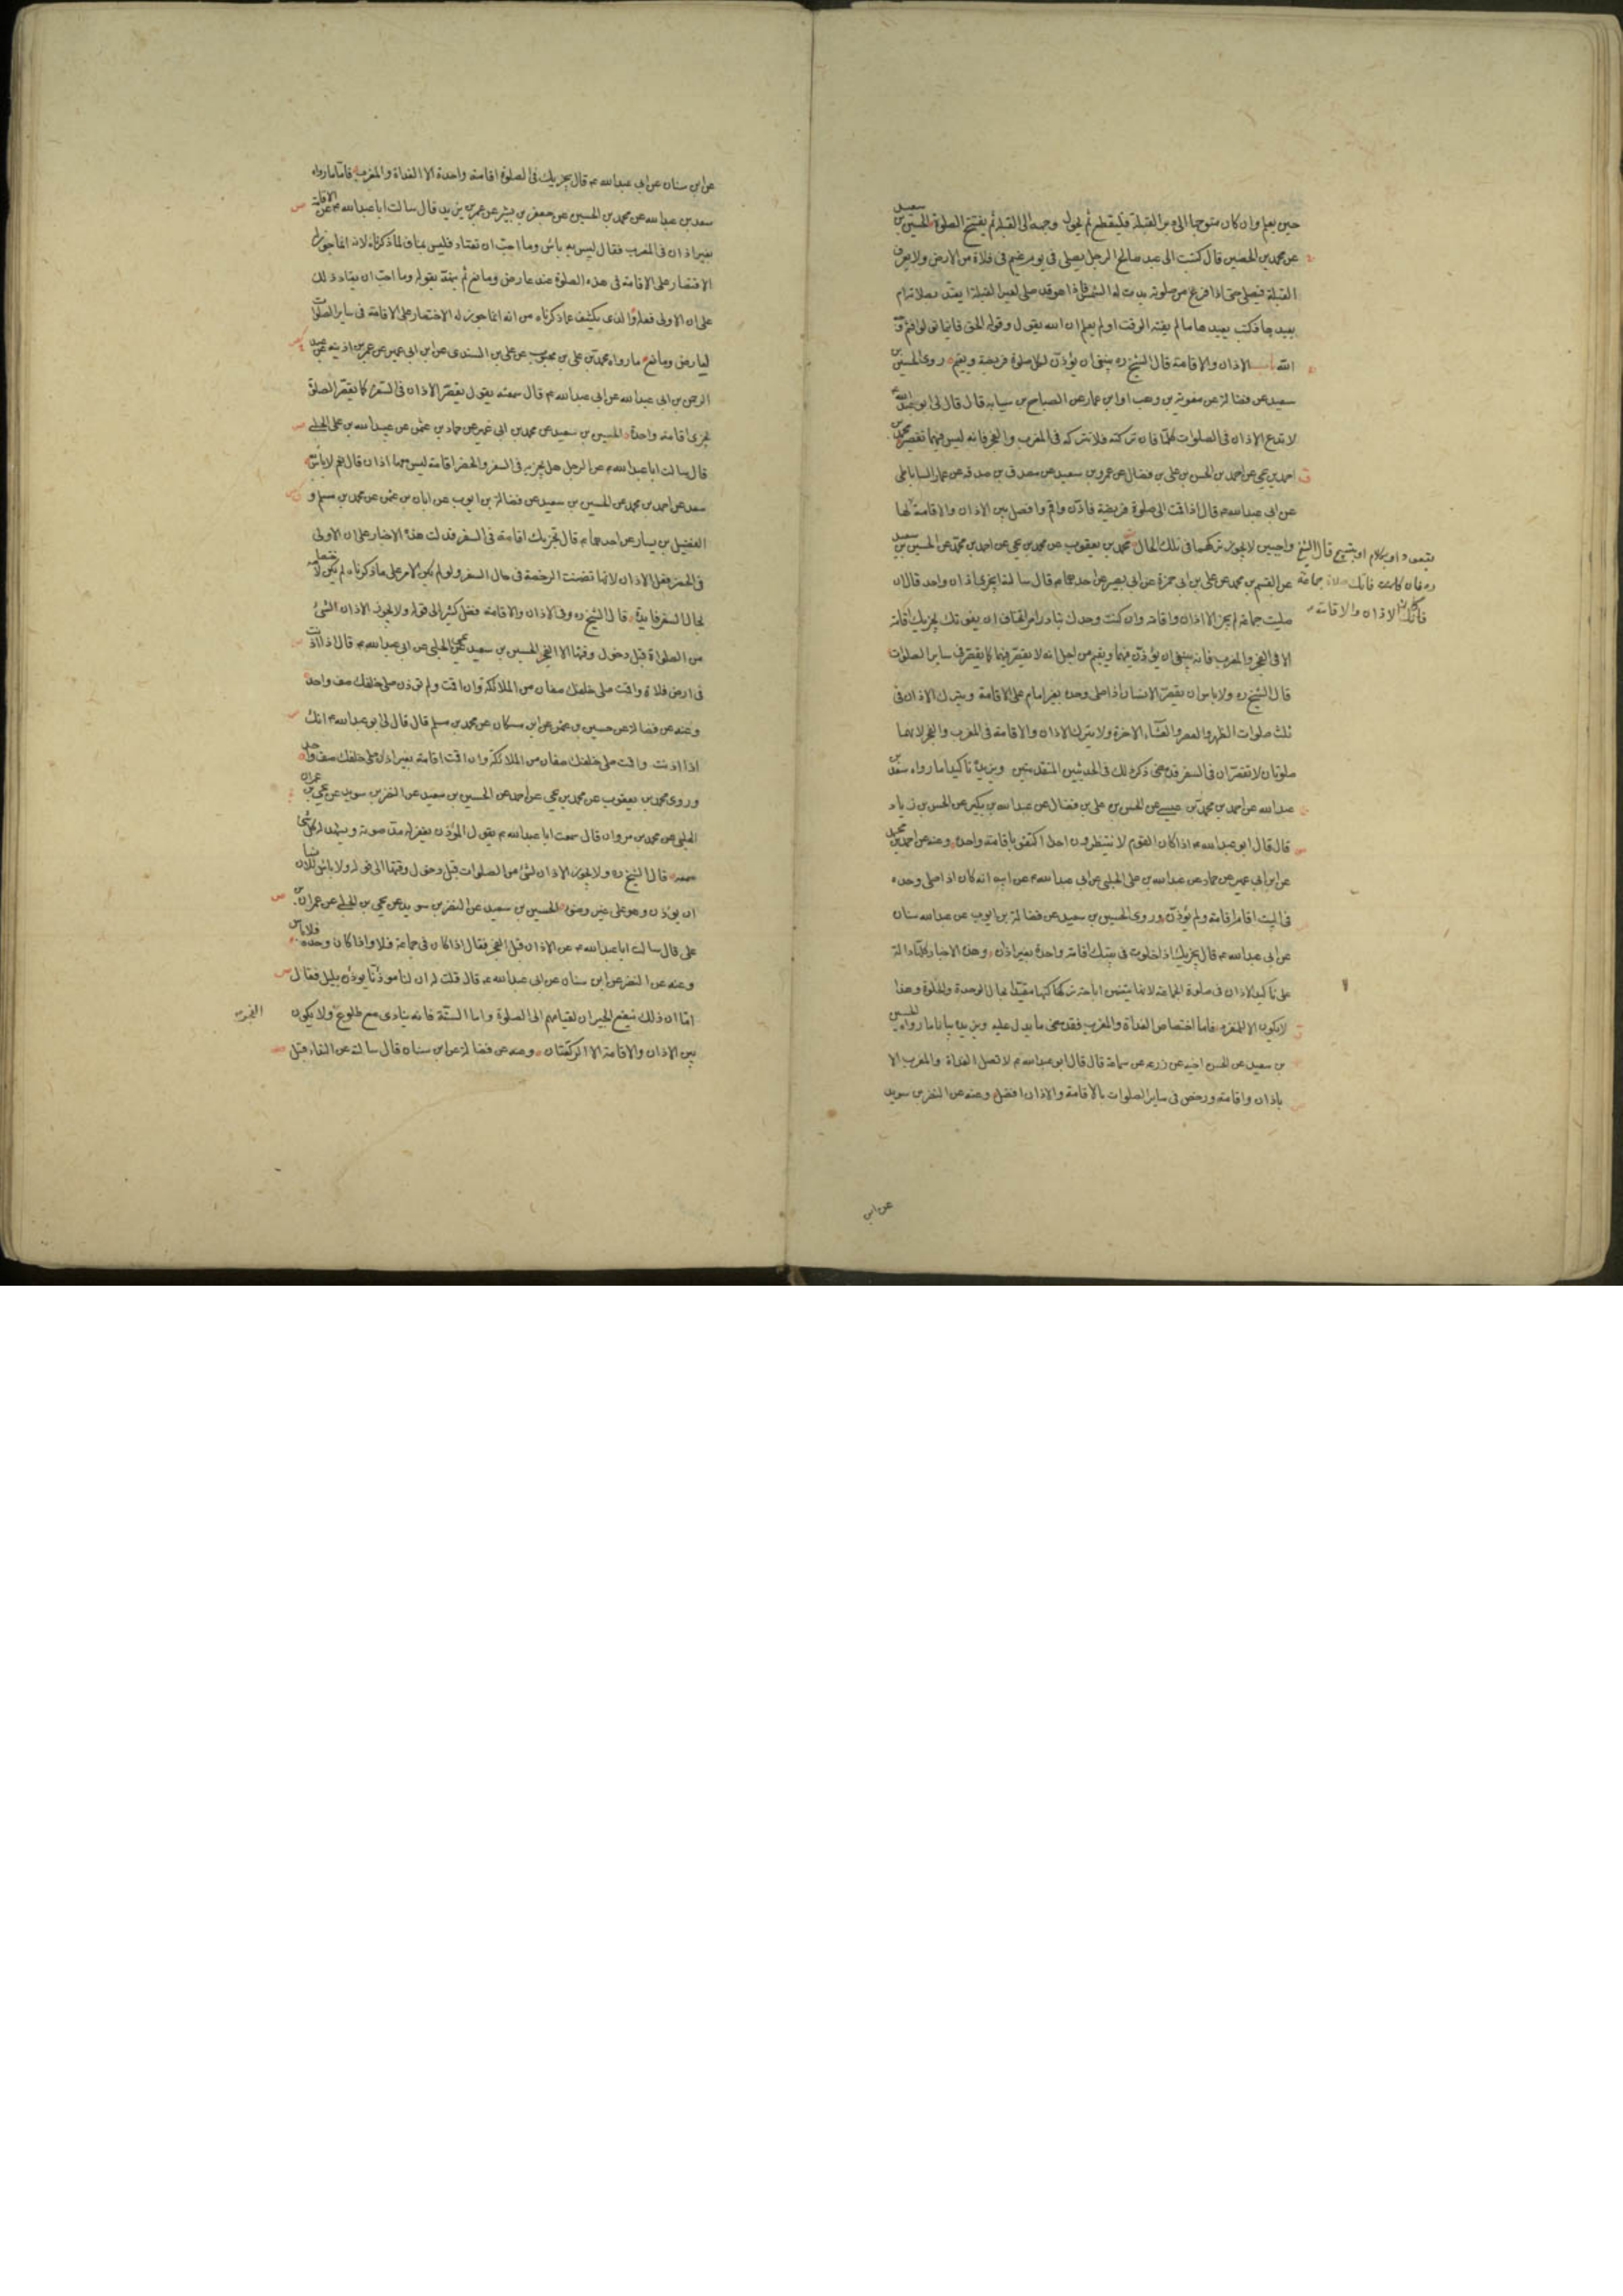 حين يعلم وان كان متوجها الى دبر القبلة فليقطع ثم يحول وجهه الى القبلة ثم يفتتح الصلوة الحسين بن سعيد
عن محمد بن الحصين قال كتبت الى عبد صالح الرجل يصلى فى يوم غيم فى فلاة من الارض ولا يعرف
القبلة فيصلى حتى اذا فرغ من صلوته بدت له الشمس فاذا هو قد صلى لغير القبلة ايعتد بصلاته ام
يعيدها فكتب يعيدها ما لم يفته الوقت اولم يعلم ان الله يقول وقوله الحق فاينما تولوا فثم وجه
الله باب الاذان والاقامة قال الشيخ ره ينبغى ان يؤذن لكل صلوة فريضة ويقيم روى الحسين بن
سعيد عن فضالة عن معوية بن وهب او ابن عمار عن الصباح بن سيابه قال قال لى ابو عبد الله ع
لا تدع الاذان فى الصلوات كلها فان تركته فلا تتركه فى المغرب والفجر فانه ليس فيهما تقصير محمد بن
احمد بن يحيى عن احمد بن الحسن بن على بن فضال عن عمرو بن سعيد عن مصدق بن صدقه عن عمار الساباطى
عن ابى عبدالله ع قال اذا قمت الى صلوة فريضة فاذن واقم وافصل بين الاذان والاقامة
بقعود او بكلام او بتسبيح قال الشيخ
ره فان كانت صلاة جماعة
كان الاذان والاقامة
واجبين لا يجوز تركهما فى تلك الحال محمد بن يعقوب عن محمد بن يحيى عن احمد بن محمد عن الحسين بن سعيد
عن القسم بن محمد عن على بن ابى حمزة عن ابى بصير عن احدهما ع قال سالته ايجزى اذان واحد قال ان
صليت جماعة لم يجز الا اذان واقامة وان كنت وحدك تبادر امرا تخاف ان يفوتك يجزيك اقامة
الا فى الفجر والمغرب فانه ينبغى ان يؤذن فيهما ويقيم من اجل انه لا يقصر فيهما كما يقصر فى ساير الصلوات
قال الشيخ ره ولا باس ان يقتصر الانسان اذا صلى وحده بغير امام على الاقامة ويترك الاذان فى
ثلث صلوات الظهر والعصر والعشاء الاخرة ولا يترك الاذان والاقامة فى المغرب والفجر لانهما
صلوتان لا تقصران فى السفر قد مضى ذكر ذلك فى الحديثين المتقدمين ويزيده تاكيدا ما رواه سعد بن
عبد الله عن احمد بن محمد بن عيسى عن الحسن بن على بن فضال عن عبد الله بن بكير عن الحسن بن زياد
قال قال ابو عبد الله ع اذا كان القوم لا ينتظرون احدا اكتفوا باقامة واحدة وعنه عن احمد بن محمد
عن ابن ابى عمير عن حماد عن عبدالله بن على الحلبى عن ابى عبد الله ع عن ابيه انه كان اذا صلى وحده
فى البيت اقام اقامة ولم يؤذن وروى الحسين بن سعيد عن فضالة بن ايوب عن عبد الله سنان
عن ابى عبد الله ع قال يجزيك اذا خلوت فى بيتك اقامة واحدة بغير اذان وهذه الاخبار كلها دالة
على تاكيد الاذان فى صلوة الجماعة لانها يتضمن اباحة تركها مقيدا بحال الوحدة والخلوة وهذا
لا يكون الا للمنفرد فاما اختصاص الغداة والمغرب فقد مضى ما يدل عليه ويزيده بيانا ما رواه الحسين
بن سعيد عن الحسن اخيه عن زرعه عن سماعة قال قال ابو عبدالله ع لا تصل الغداة والمغرب الا
باذان واقامة ورخص فى ساير الصلوات بالاقامة والاذان افضل وعنه عن النضر بن سويد
عن ابن
عن ابن سنان عن ابى عبد الله ع قال يجزيك فى الصلوة اقامة واحدة الا الغداة والمغرب فاما ما رواه
سعد بن عبد الله عن محمد بن الحسين عن جعفر بن بشير عن عمر بن يزيد قال سالت ابا عبد الله ع عن الاقامة
بغير اذان فى المغرب فقال ليس به باس وما احب ان تعتاد فليس بمناف لما ذكرناه لانه انما جوز له
الاقتصار على الاقامة فى هذه الصلوة عند عارض ومانع ثم نبه بقوله وما احب ان يعتاد ذلك
على ان الاولى فعله والذى يكشف عما ذكرناه من انه انما جوز له الاختصار على الاقامة فى ساير الصلوات
لعارض ومانع ما رواه محمد بن على بن محبوب عن على بن السندى عن ابن ابى عمير عن عمر بن اذينه عن عبد
الرحمن بن ابى عبد الله عن ابى عبد الله ع قال سمعته يقول يقصر الاذان فى السفر كما يقصر الصلوة
يجزى اقامة واحدة الحسين بن سعيد عن محمد بن ابى عمير عن حماد بن عثمن عن عبيد الله بن على الحلبى
قال سالت ابا عبد الله ع عن الرجل هل يجزيه فى السفر والحضر اقامة ليس معها اذان قال نعم لا باس به
سعد عن احمد بن محمد عن الحسين بن سعيد عن فضالة بن ايوب عن ابان بن عثمن عن محمد بن مسلم و
الفضيل بن يسار عن احدهما ع قال يجزيك اقامة فى السفر فدلت هذه الاخبار على ان الاولى
فى الحضر فعل الاذان لانها تضمنت الرخصة فى حال السفر ولو لم يكن الامر على ما ذكرناه لم يكن لاختصاصه
بحال السفر فايدة قال الشيخ ره وفى الاذان والاقامة فضل كثير الى قوله ولا يجوز الاذان لشئ
من الصلواة قبل دخول وقتها الا الفجر الحسين بن سعيد عن يحيى الحلبى عن ابى عبد الله ع قال اذا اذنت
فى ارض فلاة واقمت صلى خلفك صفان من الملائكة وان اقمت ولم توذن صلى خلفك صف واحد
وعنه عن فضالة عن حسين بن عثمن عن ابن مسكان عن محمد بن مسلم قال قال لى ابو عبد الله ع انك
اذا اذنت واقمت صلى خلفك صفان من الملائكة وان اقمت اقامة بغير اذان صلى خلفك صف واحد
وروى محمد بن يعقوب عن محمد بن يحيى عن احمد عن الحسين بن سعيد عن النضر بن سويد عن يحيى بن عمران
الحلبى عن محمد بن مروان قال سمعت ابا عبد الله ع يقول المؤذن يغفر له مد صوته ويشهد له كل شئ
سمعه قال الشيخ ره ولا يجوز الاذان لشئ من الصلوات قبل دخول وقتها الى قوله ولا باس للانسان
ان يؤذن وهو على غير وضوء الحسين بن سعيد عن النضر بن سويد عن يحيى بن الحلبى عن عمران بن
على قال سالت ابا عبد الله ع عن الاذان قبل الفجر فقال اذا كان فى جماعة فلا واذا كان وحده فلا باس
وعنه عن النضر عن ابن سنان عن ابى عبد الله ع قال قلت له ان لنا موذنا يوذن بليل فقال
اما ان ذلك ينفع الجيران لقيامهم الى الصلوة واما السنة فانه ينادى مع طلوع الفجر ولا يكون
بين الاذان والاقامة الا الركعتان وعنه عن فضالة عن ابن سنان قال سالته عن النداء قبل